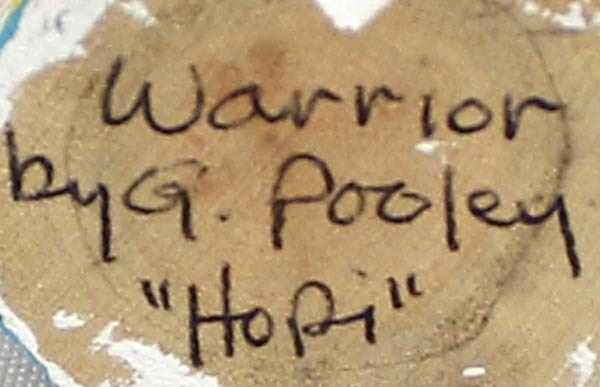 Warrior
by G. Pooley
"Hopi"